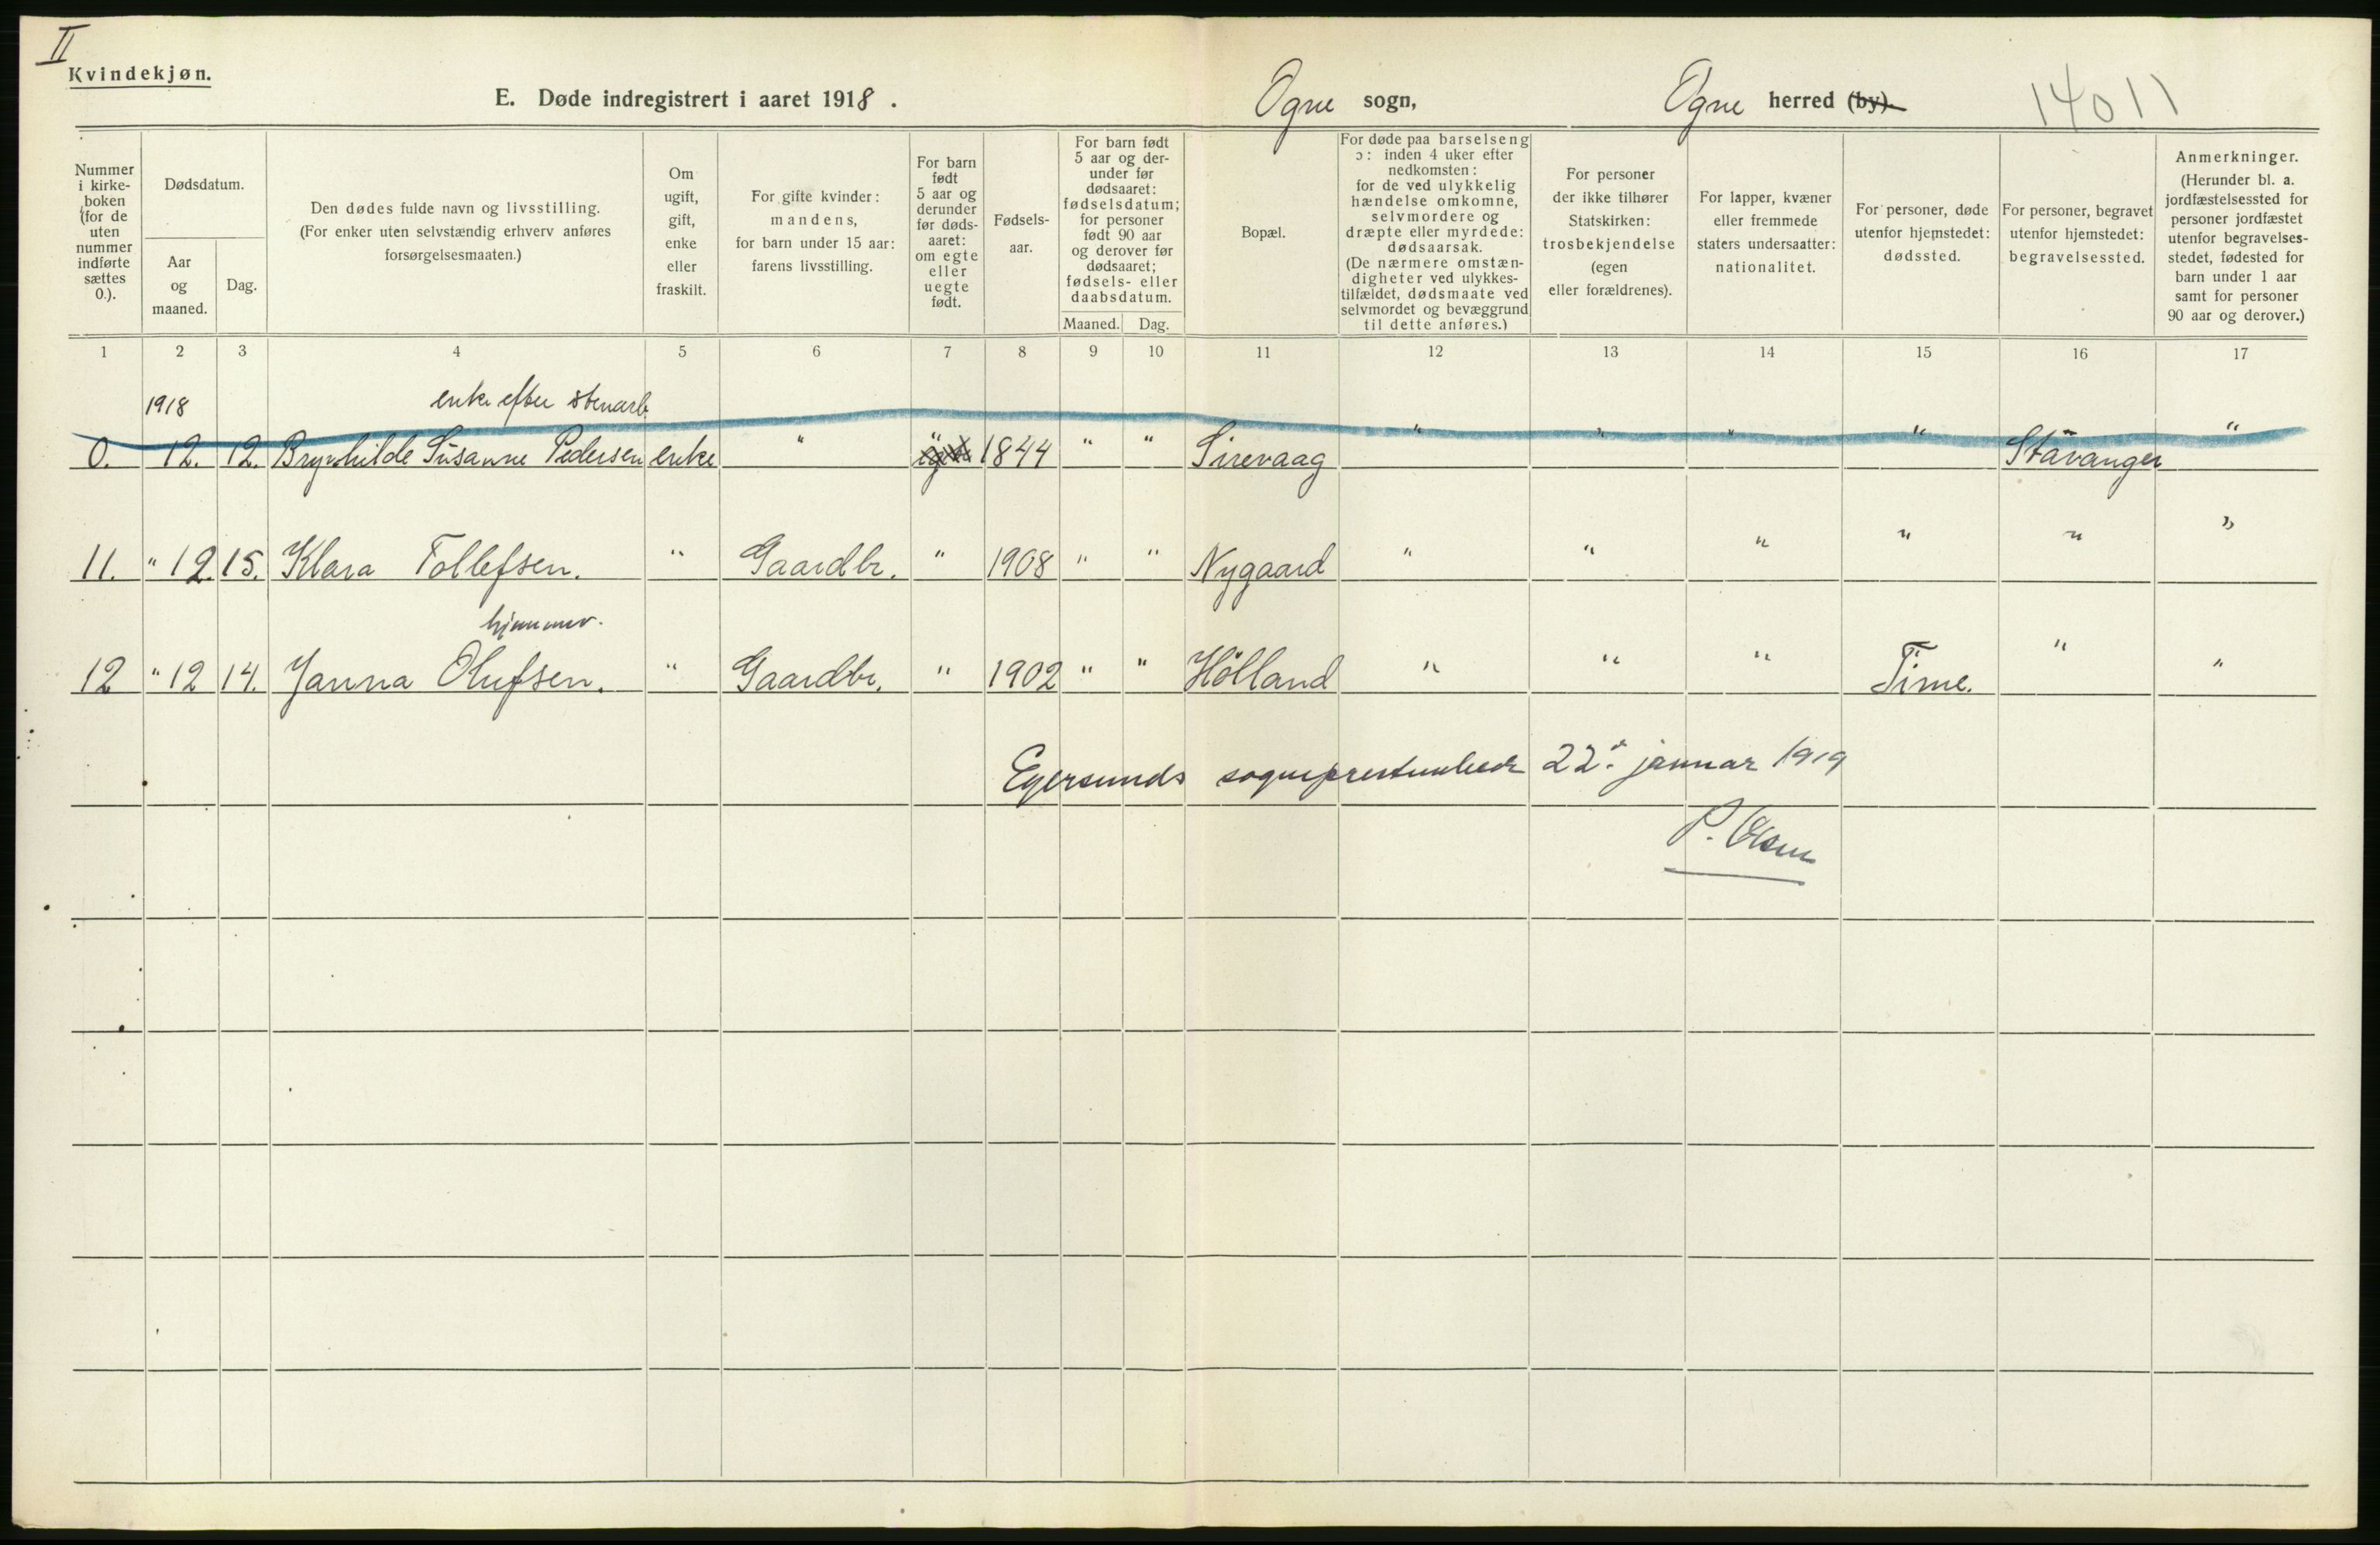 II
Kvindekjøn.
E. Døde indregistrert i aaret 1918.
Ogne sogn,
Ogne herred (by)
14011
Nummer i kirke-boken (for de uten nummer indførte sættes 0.).
Dødsdatum.
Aar og maaned.
Dag.
Den dødes fulde navn og livsstilling.
(For enker uten selvstændig erhverv anføres forsørgelsesmaaten.)
Om ugift, gift, enke eller fraskilt.
For gifte kvinder: mandens, for barn under 15 aar: farens livsstilling.
For barn født 5 aar og derunder før døds-aaret: om egte eller uegte født.
Fødsels-aar.
For barn født 5 aar og der-under før dødsaaret: fødselsdatum; for personer født 90 aar og derover før dødsaaret; fødsels- eller daabsdatum.
Maaned.
Dag.
Bopæl.
For døde paa barselseng ɔ: inden 4 uker efter nedkomsten: for de ved ulykkelig hændelse omkomne, selvmordere og dræpte eller myrdede: dødsaarsak.
(De nærmere omstæn-digheter ved ulykkes-tilfældet, dødsmaate ved selvmordet og bevæggrund til dette anføres.)
For personer der ikke tilhører Statskirken: trosbekjendelse (egen eller forældrenes).
For lapper, kvæner eller fremmede staters undersaatter: nationalitet.
For personer, døde utenfor hjemstedet: dødssted.
For personer, begravet utenfor hjemstedet: begravelsessted.
Anmerkninger.
(Herunder bl. a. jordfæstelsessted for personer jordfæstet utenfor begravelses-stedet, fødested for barn under 1 aar samt for personer 90 aar og derover.)
1 2 3 4 5 6 7 8 9 10 11 12 13 14 15 16 17
1918 enke efter stenarb.
0. 12. 12. Brynhilde Susanne Pedersen enke " " 1844 " " Sirevaag " " " " Stavanger "
11. " 12. 15. Klara Tollefsen. " Gaardbr. " 1908 " " Nygaard " " " " " "
hjemmev.
12 " 12 14. Janna Olufsen. " Gaardbr. " 1902 " " Hölland " " " Time. " "
Egersunds sogneprestembede 22. januar 1919
P. Olsen